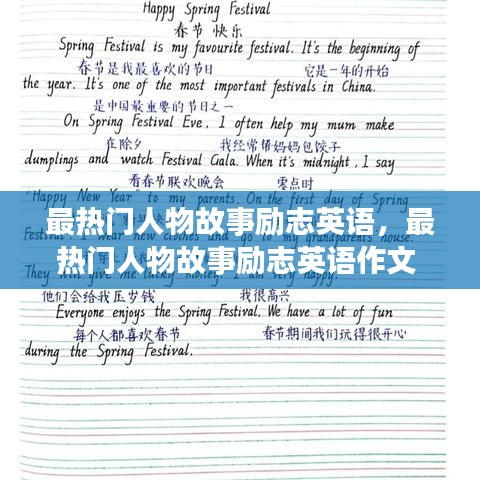 Happy Spring Festival
春节 快乐
Spring Festival is my favourite festival. It's the beginning of
春节是我最喜欢的节日 它是一年的开始
the year. It's one of the most important festivals in China.
是中国最重要的节日之一
On Spring Festival Eve, I often help my mum make
在除夕 我经常帮妈妈包饺子
dumplings and watch Festival Gala. When it's midnight, I say
看春节联欢晚会 零点时
"Happy New Year" to my parents. On the first day of Spring
最热门人物故事励志英语，最
热门人物故事励志英语作文
他们会给我压岁钱 我很高兴
Everyone enjoys the Spring Festival. We have a lot of fun
每个人都喜欢春节 春节期间我们玩得很开心
during the Spring Festival.